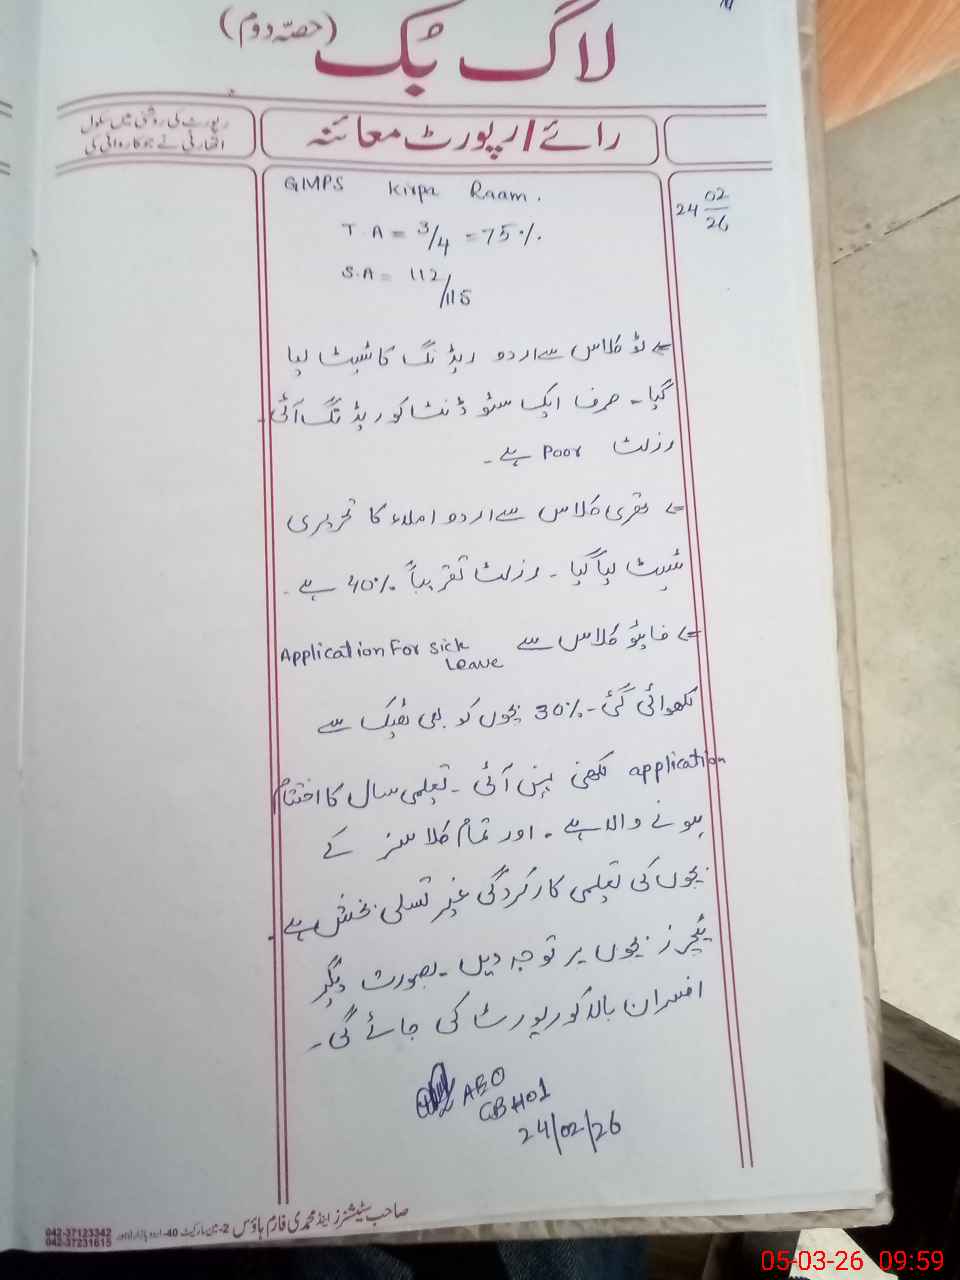 لاگ بُک (حصّہ دوم)
رائے/رپورٹ معائنہ
رپورٹ کی روشنی میں سکول
اتھارٹی نے جو کاروائی کی
24 02/26
GMPS Kirpa Raam.
T.A = 3/4 = 75%
S.A = 112/115
کلاس سے اردو ریڈنگ کا ٹیسٹ لیا
گیا۔ صرف ایک سٹوڈنٹ کو ریڈنگ آئی۔
رزلٹ Poor ہے۔
تھری کلاس سے اردو املاء کا تحریری
ٹیسٹ لیا گیا۔ رزلٹ تقریباً 40% ہے۔
فائیو کلاس سے Application For Sick Leave
لکھوائی گئی۔ 30% بچوں کو بھی ٹھیک سے
application لکھنی نہیں آئی۔ تعلیمی سال کا اختتام
ہونے والا ہے۔ اور تمام کلاسز کے
بچوں کی تعلیمی کارکردگی غیر تسلی بخش ہے۔
ٹیچرز بچوں پر توجہ دیں۔ بصورت دیگر
افسران بالا کو رپورٹ کی جائے گی۔
AEO
24/02/26
صاحب سٹیشنرز اینڈ محمدی فارم ہاؤس 2-مین مارکیٹ 40-اردو بازار لاہور 042-37123342
042-37231615
05-03-26 09:59